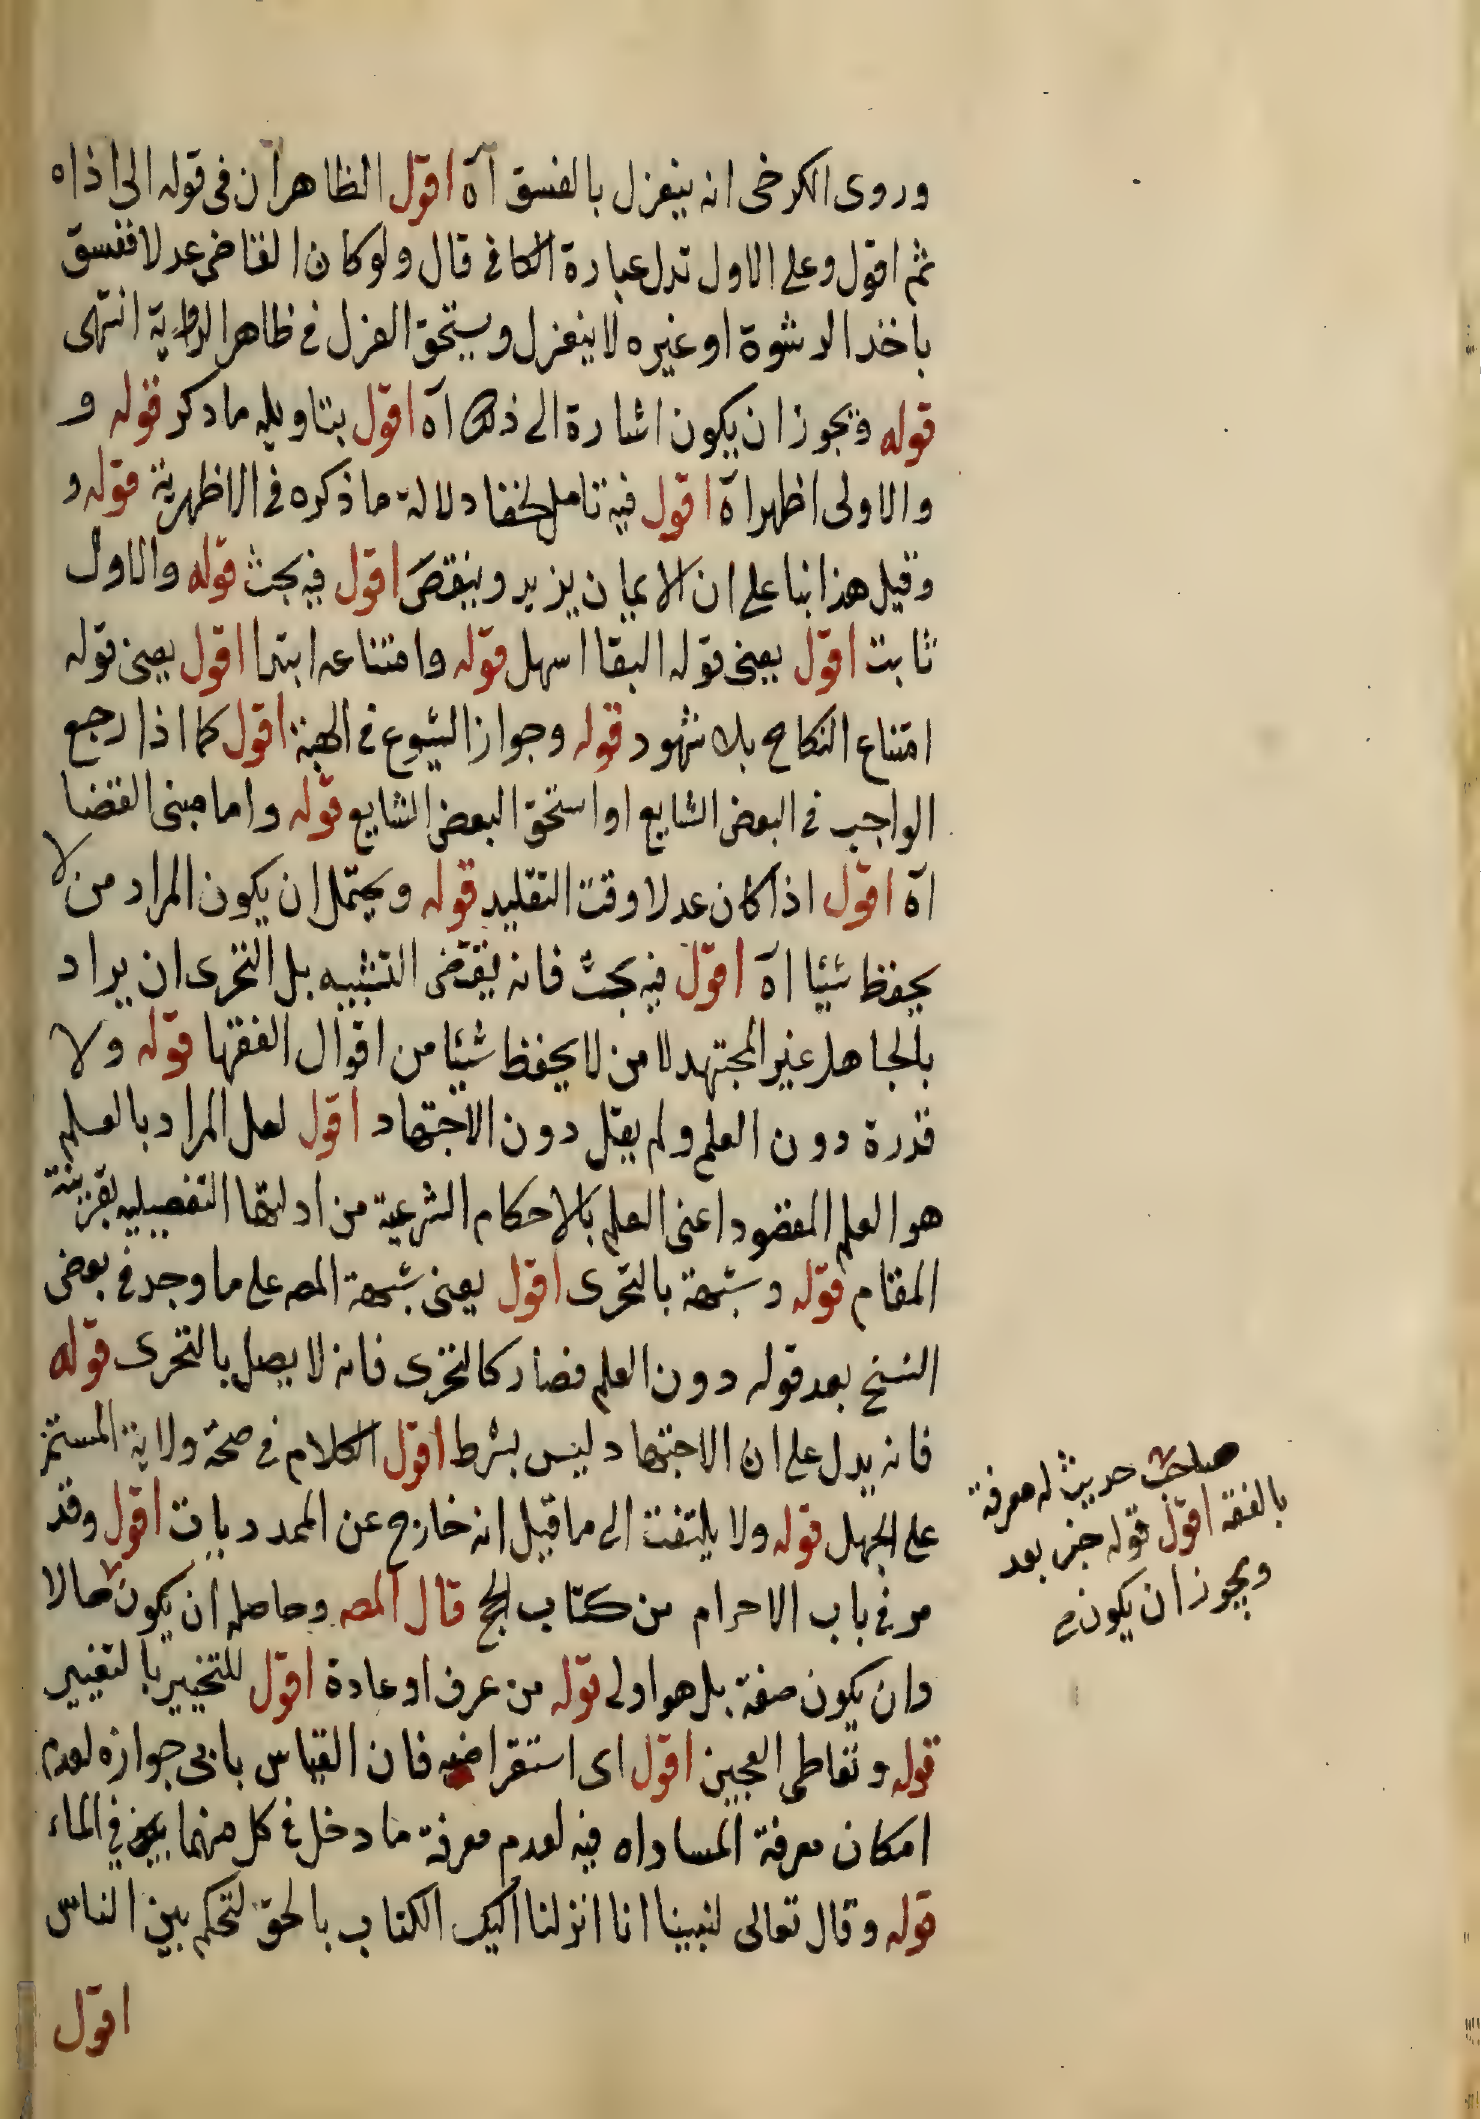 وروى الكرخى انه ينعزل بالفسق آه اقول الظاهر ان فى قوله الى اذاه
ثم اقول وعلى الاول تدل عبارة الكافى قال ولو كان القاضى عدلا ففسق
باخذ الرشوة او غيره لا ينعزل ويستحق العزل فى ظاهر الرواية انتهى
قوله فيجوز ان يكون اشارة الى ذلك آه اقول بتاويله ما ذكر قوله و
والاولى اظهر آه اقول فيه تامل لخفا دلالة ما ذكره فى الاظهرية قوله و
وقيل هذا بنا على ان الايمان يزيد وينقص اقول فيه بحث قوله والاول
ثابت اقول يعنى قوله البقا اسهل قوله وامتناعه ابتدا اقول يعنى قوله
امتناع النكاح بلا شهود قوله وجواز الشيوع فى الهبة اقول كما اذا رجع
الواجب فى البعض الشايع او استحق البعض الشايع قوله واما مبنى القضا
آه اقول اذا كان عدلا وقت التقليد قوله ويحتمل ان يكون المراد من لا
يحفظ شيئا آه اقول فيه بحث فانه يقتضى التشبيه بل التحرى ان يراد
بالجاهل غير المجتهد لا من لا يحفظ شيئا من اقوال الفقها قوله ولا
قدرة دون العلم ولم يقل دون الاجتهاد اقول لعل المراد بالعلم
هو العلم المقصود اعنى العلم بالاحكام الشرعية من ادلتها التفصيليه بقرينة
المقام قوله وشبهة بالتحرى اقول يعنى شبهة المصه على ما وجد فى بعض
النسخ بعد قوله دون العلم فصار كالتحرى فانه لا يصل بالتحرى قوله
فانه يدل على ان الاجتهاد ليس بشرط اقول الكلام فى صحة ولاية المستمر
على الجهل قوله ولا يلتفت الى ما قيل انه خارج عن الممدد بات اقول وقد
مر فى باب الاحرام من كتاب الحج قال المصه وحاصله ان يكون حالا
وان يكون صفة بل هو اولى قوله من عرف او عادة اقول للتخيير بالتغيير
قوله وتعاطى العجين اقول اى استقراضه فان القياس يابى جوازه لعدم
امكان معرفة المساواه فيه لعدم معرفة ما دخل فى كل منهما من الماء
قوله وقال تعالى لنبينا انا انزلنا اليك الكتاب بالحق لتحكم بين الناس
اقول
صاحب حديث له معرفة
بالفقه اقول قوله خبر بعد
ويجوز ان يكون